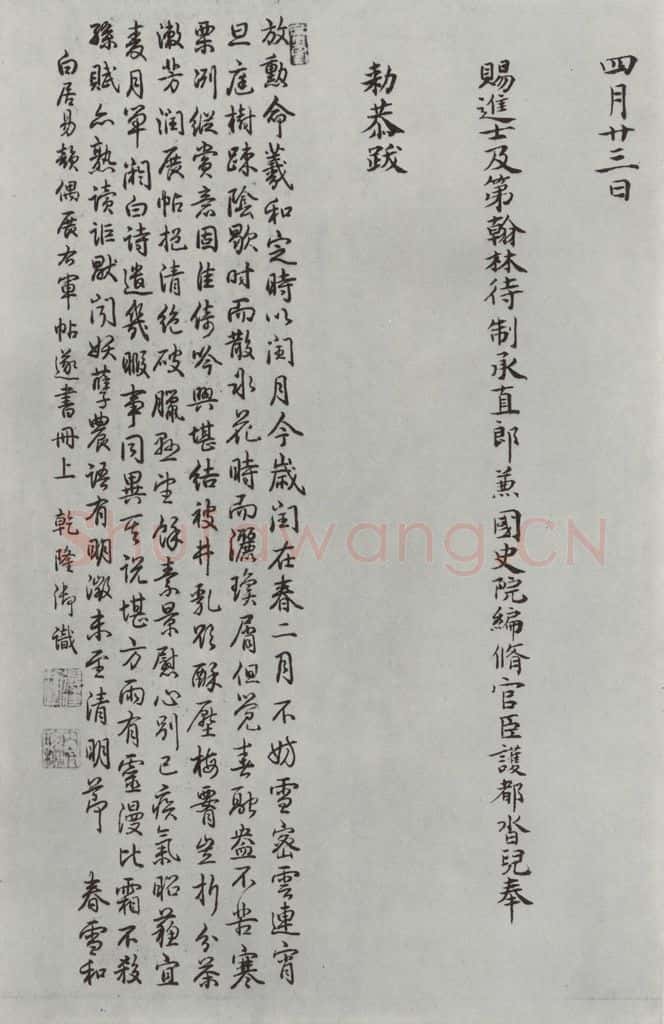 四月廿三日
賜進士及第翰林待制承直郎兼國史院編脩官臣護都沓兒奉
勑恭跋
放勳命羲和定時以閏月今歲閏在春二月不妨雪密雲連宵
旦庭樹疎陰歇时而散氷花時而灑瓊屑但覺春融盎不苦寒
栗冽縱賞意固佳倚吟興堪結被井乳酥壓梅豈折分茶
漱芳润展帖挹清絶破臘望餘素景慰心別已疾氣昭蘓宜
麦月單白诗遣幾暇事同異其说堪方雨有靈漫比霜不殺
孫賦熟读詎默妖孽農语有明澂未至清明莭 春雪和
白居易韻偶展右軍帖遂書冊上 乾隆御識
Shufawang.CN